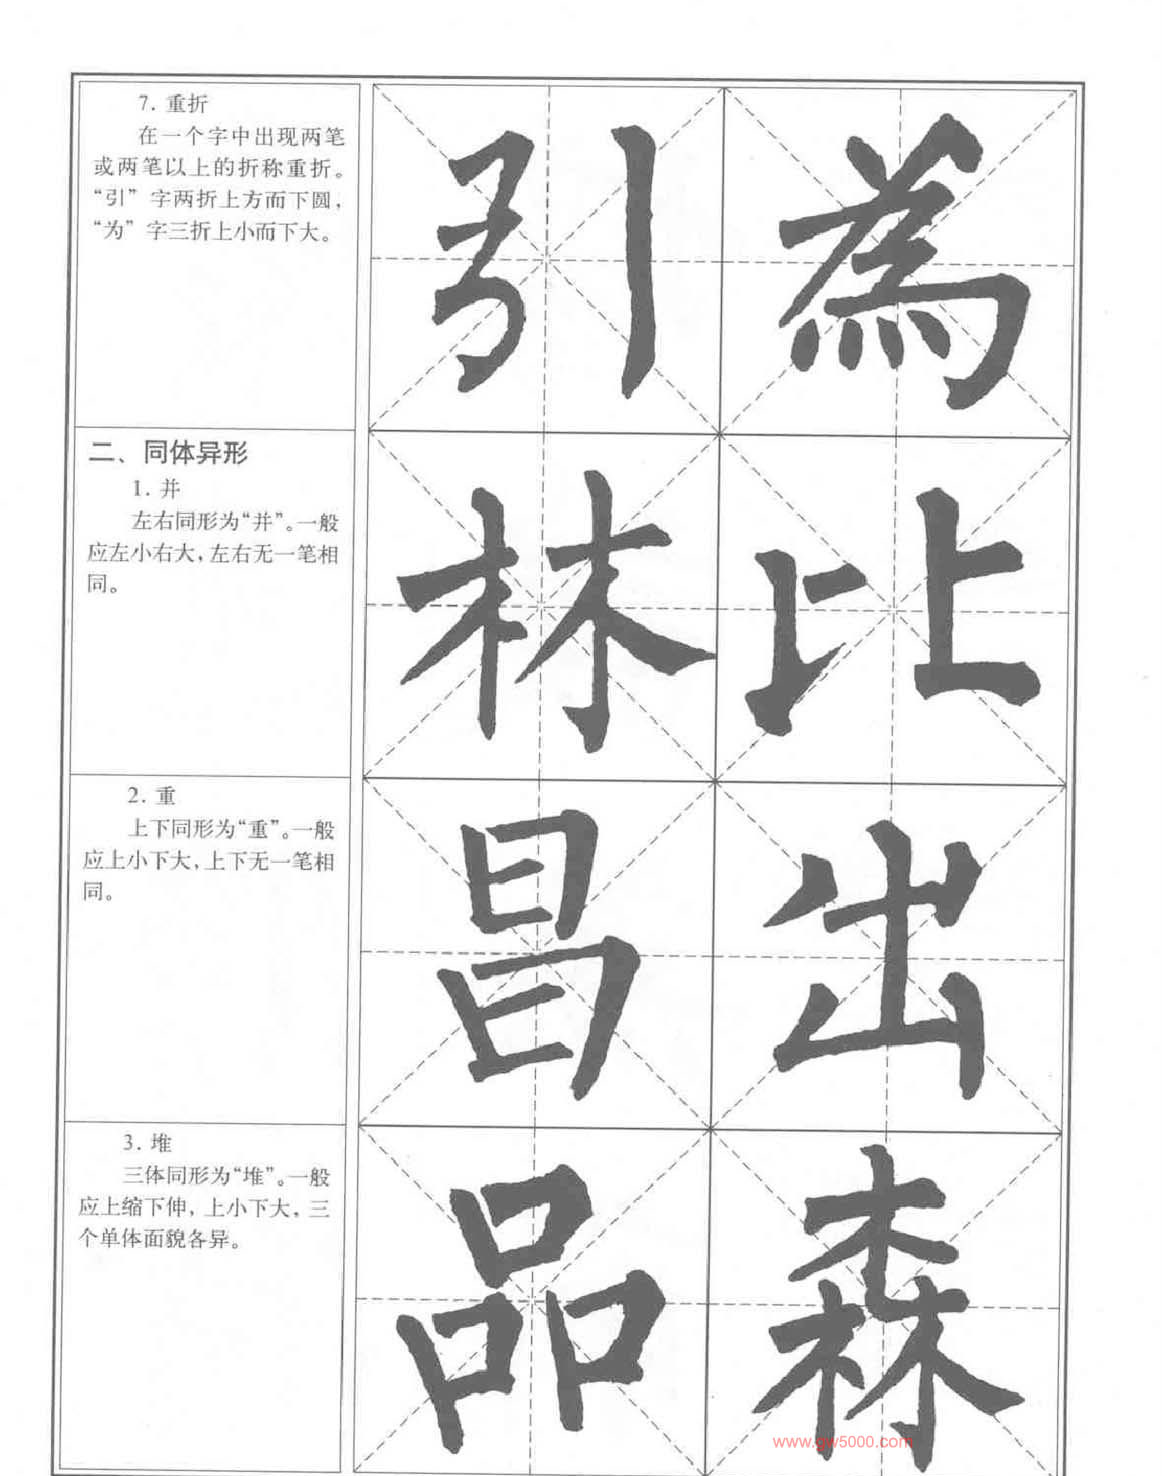 7. 重折
在一个字中出现两笔
或两笔以上的折称重折。
“引”字两折上方而下圆,
“为”字三折上小而下大。
引 為
二、同体异形
1. 并
左右同形为“并”。一般
应左小右大,左右无一笔相
同。
林 比
2. 重
上下同形为“重”。一般
应上小下大,上下无一笔相
同。
昌 出
3. 堆
三体同形为“堆”。一般
应上缩下伸,上小下大,三
个单体面貌各异。
品 森
www.gw5000.com